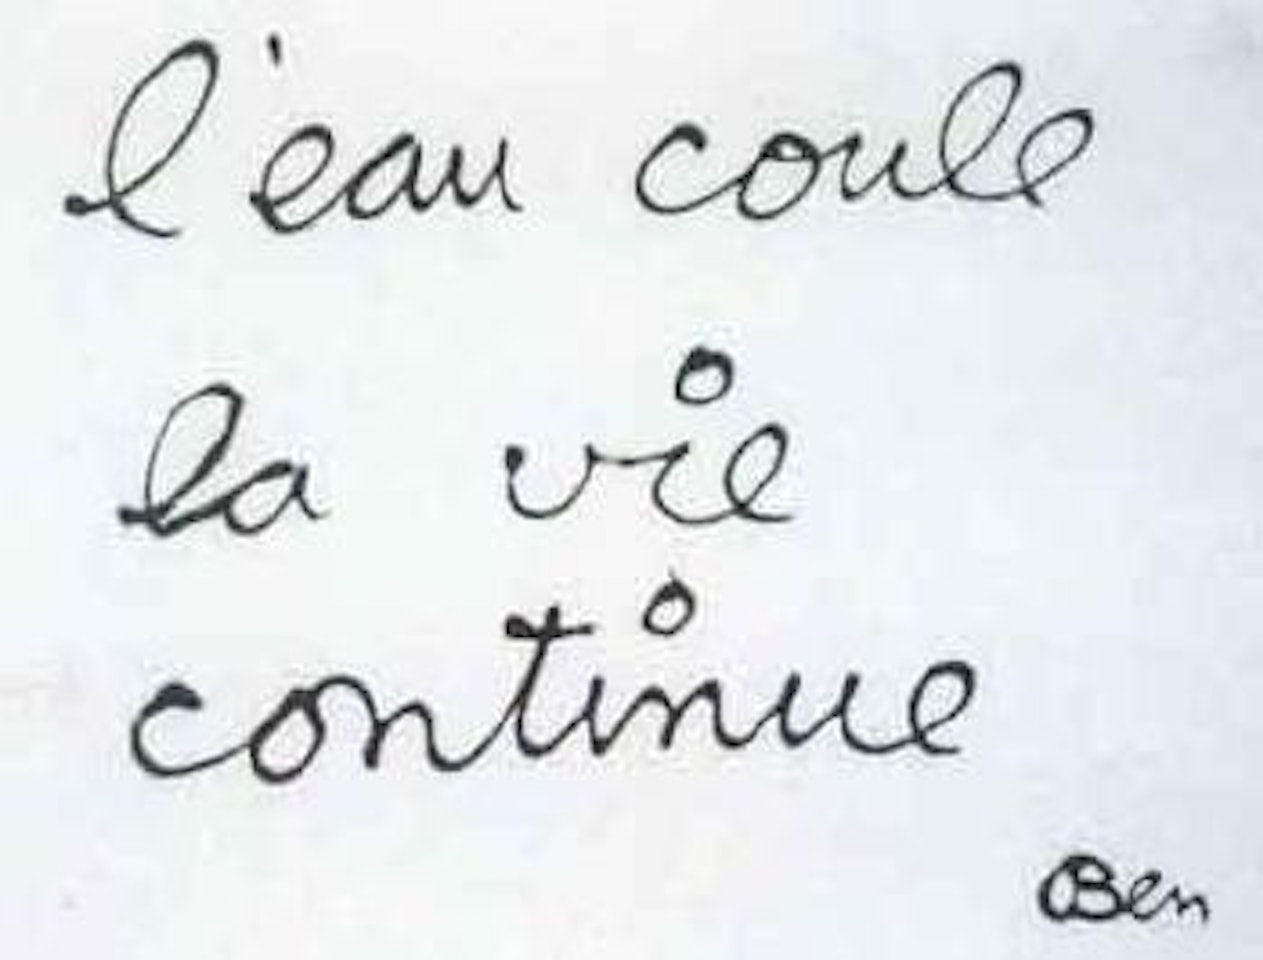 l'eau coule
la vie
continue
Ben